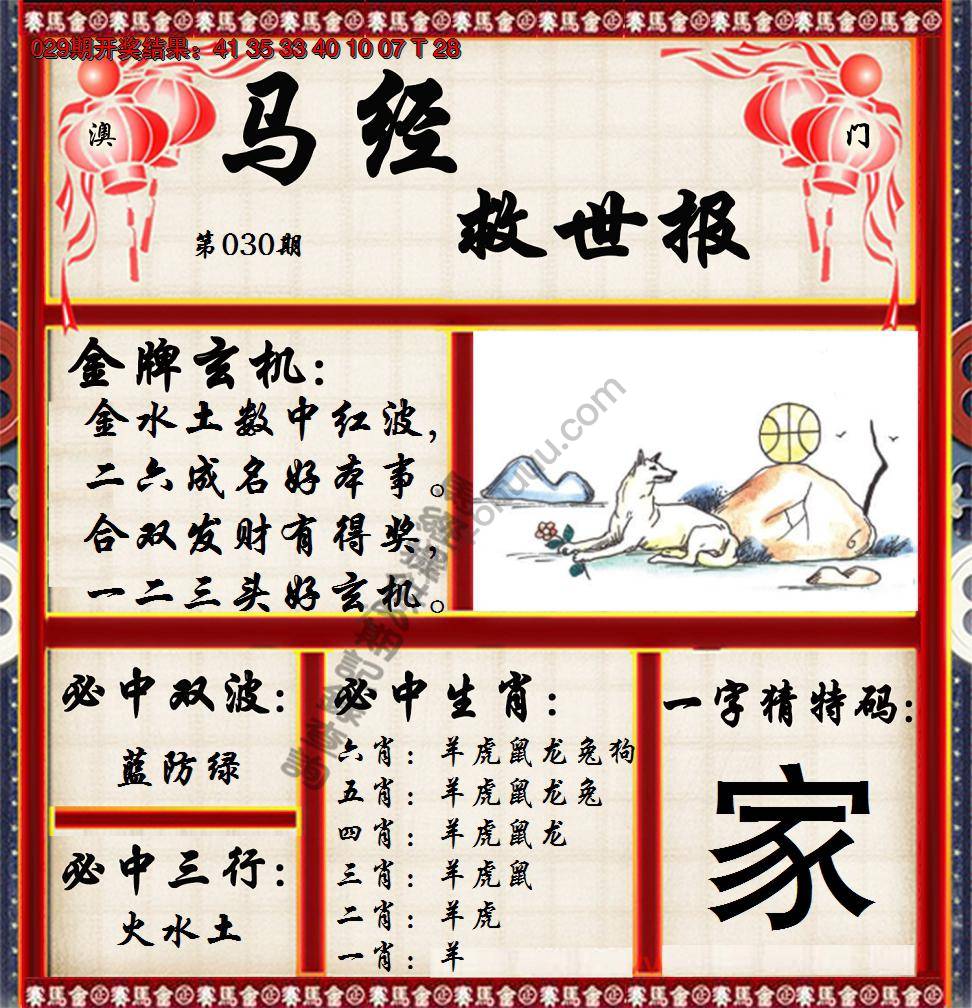 赛馬會
029期开奖结果：41 35 33 40 10 07 T 28
澳 门
马经
救世报
第030期
金牌玄机：
金水土数中红波，
二六成名好本事。
合双发财有得奖，
一二三头好玄机。
必中双波：
蓝防绿
必中三行：
火水土
必中生肖：
六肖：羊虎鼠龙兔狗
五肖：羊虎鼠龙兔
四肖：羊虎鼠龙
三肖：羊虎鼠
二肖：羊虎
一肖：羊
一字猜特码：
家